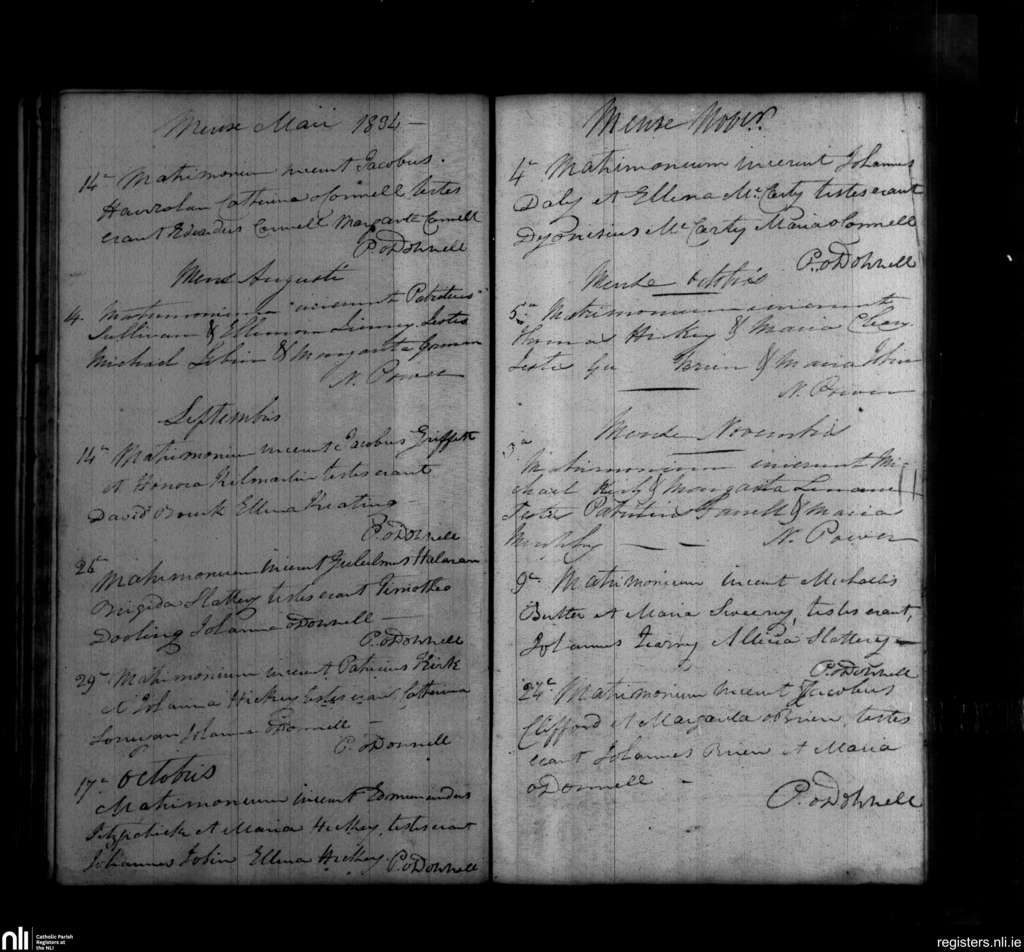 Mense Maii 1834 –
14a Matrimonium inierunt Jacobus
Catherina oConnell testes
erant Edvardus Connell Margarita Connell
P. oDonnell
Mense Augusti
4. Matrimonium inierunt Patritius
Sullivan & Ellenora testes
Michael Tobin & Margarita Gorman
N. Power
Septembris
14a Matrimonium inierunt Jacobus Griffith
et Honora Kilmartin testes erant
David Bourk Ellena Keating –
P. oDonnell
26a Matrimonium inierunt Gulielmus
Brigida Slattery testes erant Timotheo
Dooling Johanna oDonnell –
P. oDonnell
29a Matrimonium inierunt Patricius Kirk
et Johanna Hickey testes erant Catherina
Lonergan Johanna oDonnell –
P. oDonnell
17a Octobris
Matrimonium inierunt Edmundus
Fitzpatrick et Maria Hickey, testes erant
Johannes Tobin Ellena Hickey. P. oDonnell
Mense Novbr.
4a Matrimonium inierunt Johannes
Daly et Ellena McCarty testes erant
Dyonisius McCarty Maria oConnell
P. oDonnell
Mense Octobris
5a Matrimonium inierunt
Thomas Hickey & Maria Cleary
Teste Brien & Maria Tobin
N. Power
Mense Novembris
3a
Matrimonium inierunt Mi-
chael Kirby & Margarita
Teste Patritius Farrell & Maria
Murphy — — N. Power
9a Matrimonium inierunt Michaelis
Butler et Maria Sweeny, testes erant,
Johannes Alicia Slattery –
P. oDonnell
24a Matrimonium inierunt Jacobus
Clifford et Margarita oBrien, testes
erant Johannes Brien et Maria
oDonnell –
P. oDonnell
nli
Catholic Parish
Registers at
the NLI
registers.nli.ie